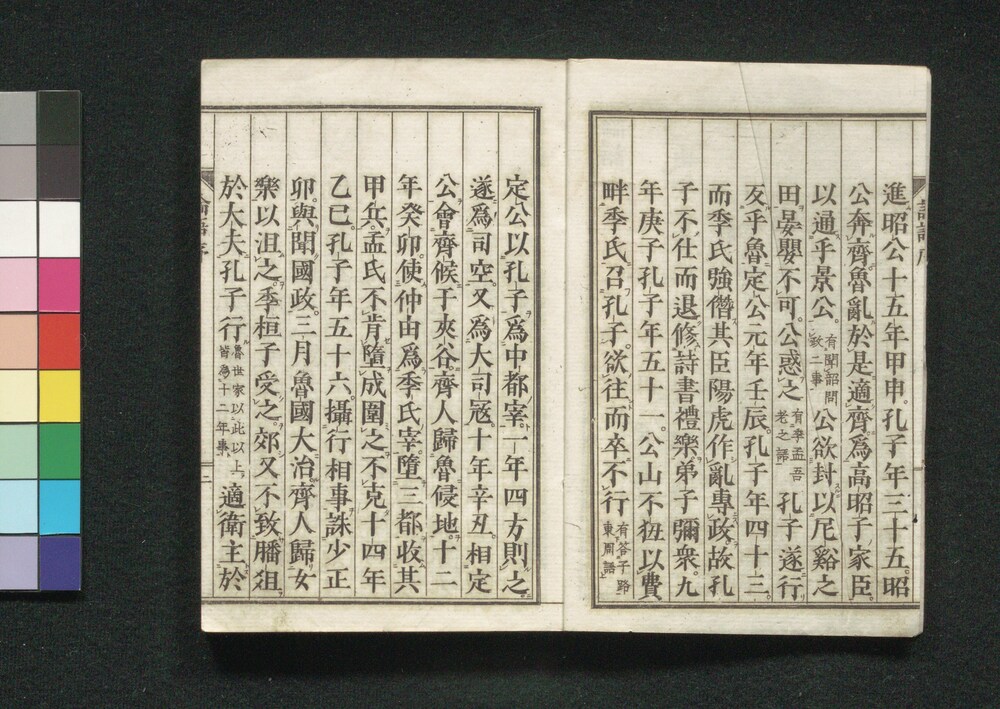 進昭公十五年甲申。孔子年三十五。昭
公奔齊。魯亂。於是適齊。為高昭子家臣。
以通乎景公。有聞韶問政二事公欲封以尼谿之
田。晏嬰不可。公惑之。有季孟吾老之語孔子遂行。
反乎魯。定公元年壬辰。孔子年四十三。
而季氏強僭。其臣陽虎作亂專政。故孔
子不仕。而退修詩書禮樂。弟子彌衆。九
年庚子。孔子年五十一。公山不狃以費
畔季氏。召孔子。欲往。而卒不行。有答子路東周語
定公以孔子為中都宰。一年四方則之。
遂為司空。又為大司寇。十年辛丑。相定
公會齊侯于夾谷。齊人歸魯侵地。十二
年癸卯。使仲由為季氏宰。墮三都。收其
甲兵。孟氏不肯墮成。圍之不克。十四年
乙巳。孔子年五十六。攝行相事。誅少正
卯。與聞國政。三月。魯國大治。齊人歸女
樂以沮之。季桓子受之。郊又不致膰俎
於大夫。孔子行。魯世家以此以上皆為十二年事適衛。主於